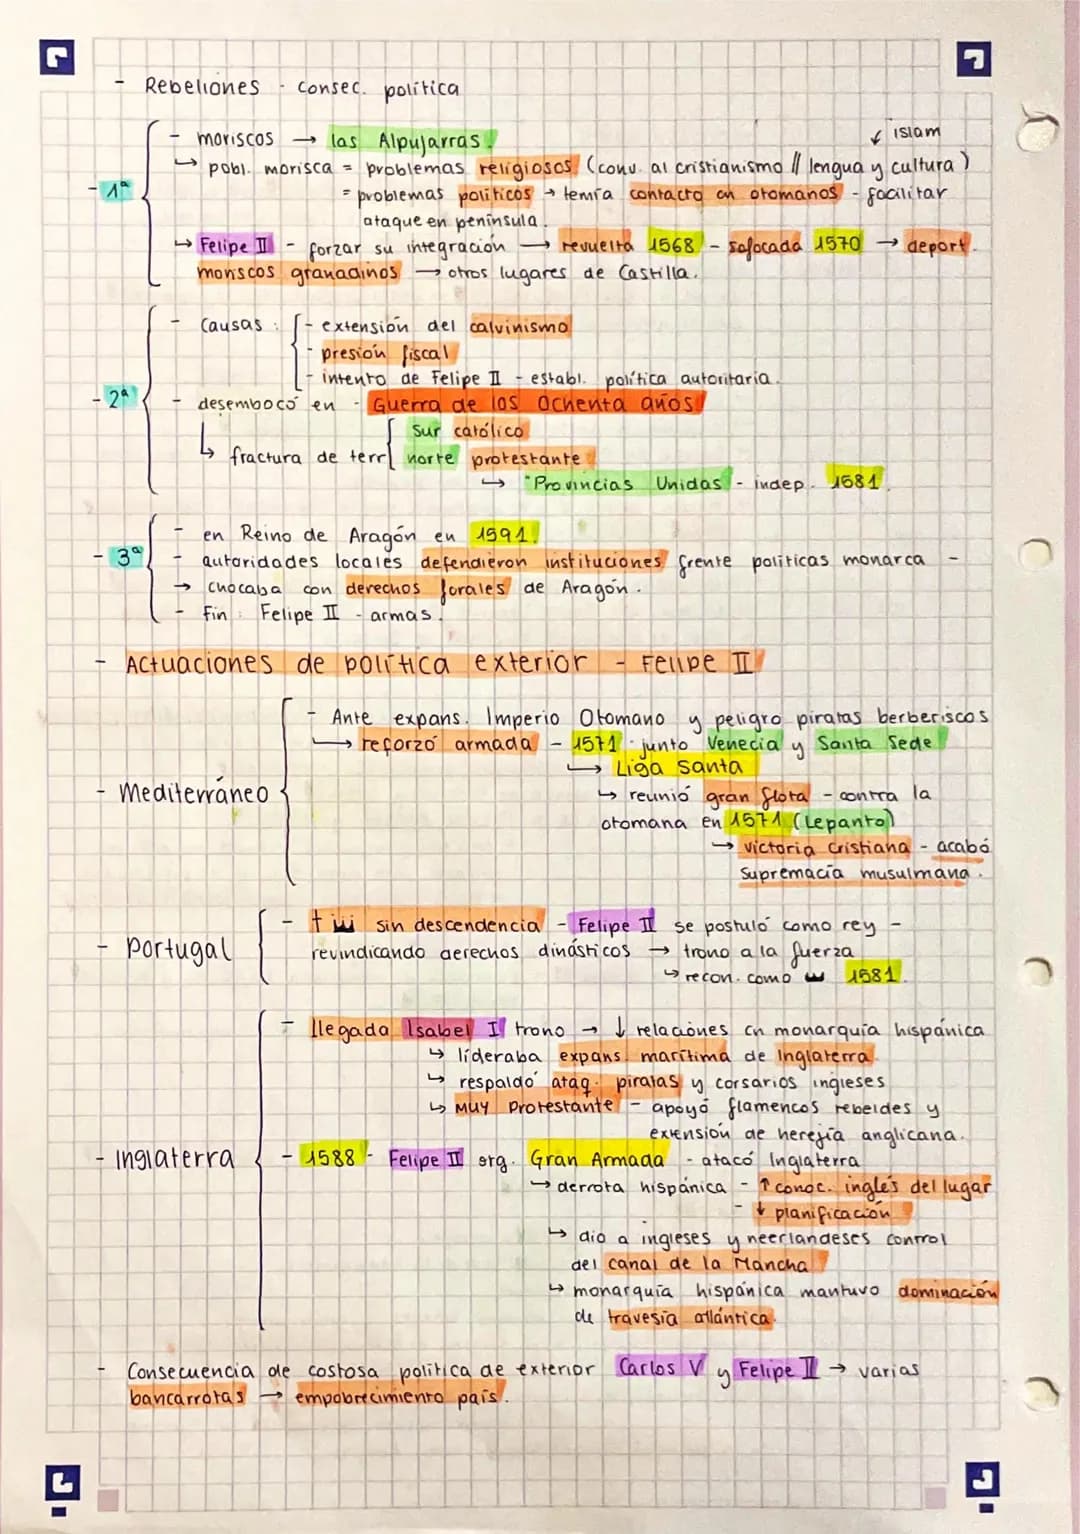 - Rebeliones - consec. política
- moriscos → las Alpujarras.
↓ islam
↳ pobl. morisca = problemas religiosos (conv. al cristianismo // lengua y cultura)
- 1ª
= problemas políticos → temía contacto cn otomanos - facilitar
ataque en península.
↳ Felipe II - forzar su integración → revuelta 1568 - sofocada 1570 → deport.
moriscos granadinos → otros lugares de Castilla.
- causas : - extensión del calvinismo
- presión fiscal
- intento de Felipe II - establ. política autoritaria.
- 2ª
- desembocó en - Guerra de los Ochenta años
Sur católico
↳ fractura de terr norte protestante
↳ "Provincias Unidas - indep. 1581.
- en Reino de Aragón en 1591.
- 3ª
- autoridades locales defendieron instituciones frente políticas monarca -
→ chocaba con derechos forales de Aragón.
- Fin : Felipe II - armas.
- Actuaciones de política exterior - Felipe II
- Ante expans. Imperio Otomano y peligro piratas berberiscos
↳ reforzó armada - 1571 - junto Venecia y Santa Sede
↳ Liga Santa
- Mediterráneo
↳ reunió gran flota - contra la
otomana en 1571 (Lepanto)
→ victoria cristiana - acabó
supremacía musulmana.
- † sin descendencia - Felipe II se postuló como rey -
- Portugal
revindicando derechos dinásticos → trono a la fuerza
↳ recon. como 1581.
- llegada Isabel I trono → ↓ relaciones cn monarquía hispánica
↳ lideraba expans. marítima de Inglaterra.
↳ respaldó ataq. piratas y corsarios ingleses
↳ MUY Protestante - apoyó flamencos rebeldes y
extensión de herejía anglicana.
- Inglaterra
- 1588 - Felipe II org. Gran Armada - atacó Inglaterra
→ derrota hispánica - ↑ conoc. inglés del lugar
- ↓ planificación
↳ dio a ingleses y neerlandeses control
del canal de la Mancha
↳ monarquía hispánica mantuvo dominación
de travesía atlántica.
- Consecuencia de costosa política de exterior Carlos V y Felipe II → varias
bancarrotas → empobrecimiento país.